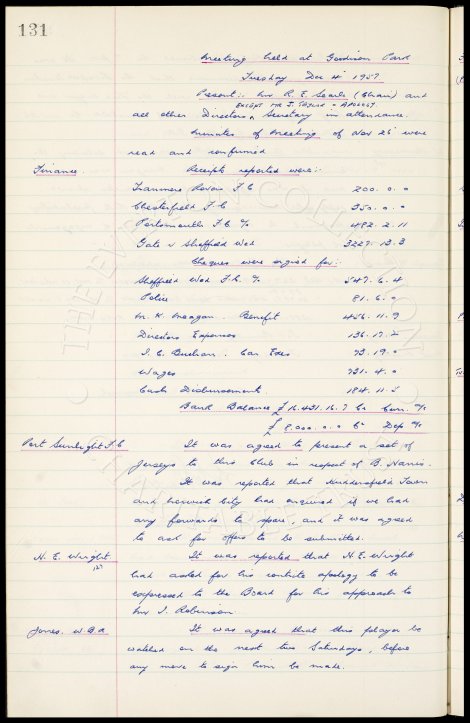 131
Meeting held at Goodison Park
Tuesday Dec 4th 1957
Present:- Mr R. E. Searle (Chair) and
EXCEPT MR J. TAYLOR - APOLOGY
all other Directors, Secretary in attendance.
Minutes of Meeting of Nov 26th were
read and confirmed
Finance. Receipts reported were:-
Tranmere Rovers F C 200. 0. 0
Chesterfield F C 350. 0. 0
Portsmouth F C % 482. 2. 11
Gate v Sheffield Wed 3227. 13. 3
Cheques were signed for:-
Sheffield Wed F. C. % 547. 6. 4
Police 81. 6. 0
M. K. Meagan. Benefit 456. 11. 9
Directors Expenses 136. 17. 2
I. C. Buchan. Car Exes 73. 19. 0
Wages 731. 4. 0
Cash Disbursements 184. 11. 5
Bank Balance £16.431.16.7 Cr Curr. a/c
£8.000.0.0 Cr Dep a/c
Port Sunlight F.C It was agreed to present a set of
jerseys to this Club in respect of B. Harris.
It was reported that Huddersfield Town
and Norwich City had enquired if we had
any forwards to spare, and it was agreed
to ask for offers to be submitted.
H. E. Wright It was reported that H. E. Wright
127
had asked for his contrite apology to be
expressed to the Board for his approach to
Mr J. Robinson.
Jones. W.B.A It was agreed that this player be
watched on the next two Saturdays, before
any move to sign him be made.